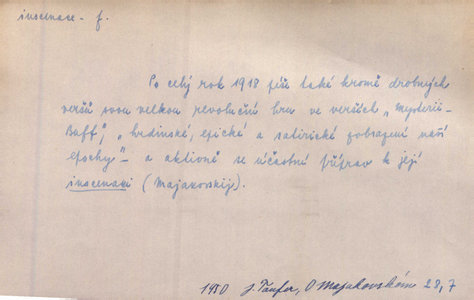 inscenace - f.
Po celý rok 1918 píše také kromě drobných
veršů svou velkou revoluční hru ve verších „Mysterii-
Buff", „hrdinské, epické a satirické zobrazení naší
epochy" - a aktivně se účastní příprav k její
inscenaci (Majakovskij).
1950 J. Taufer, O Majakovském 28,7